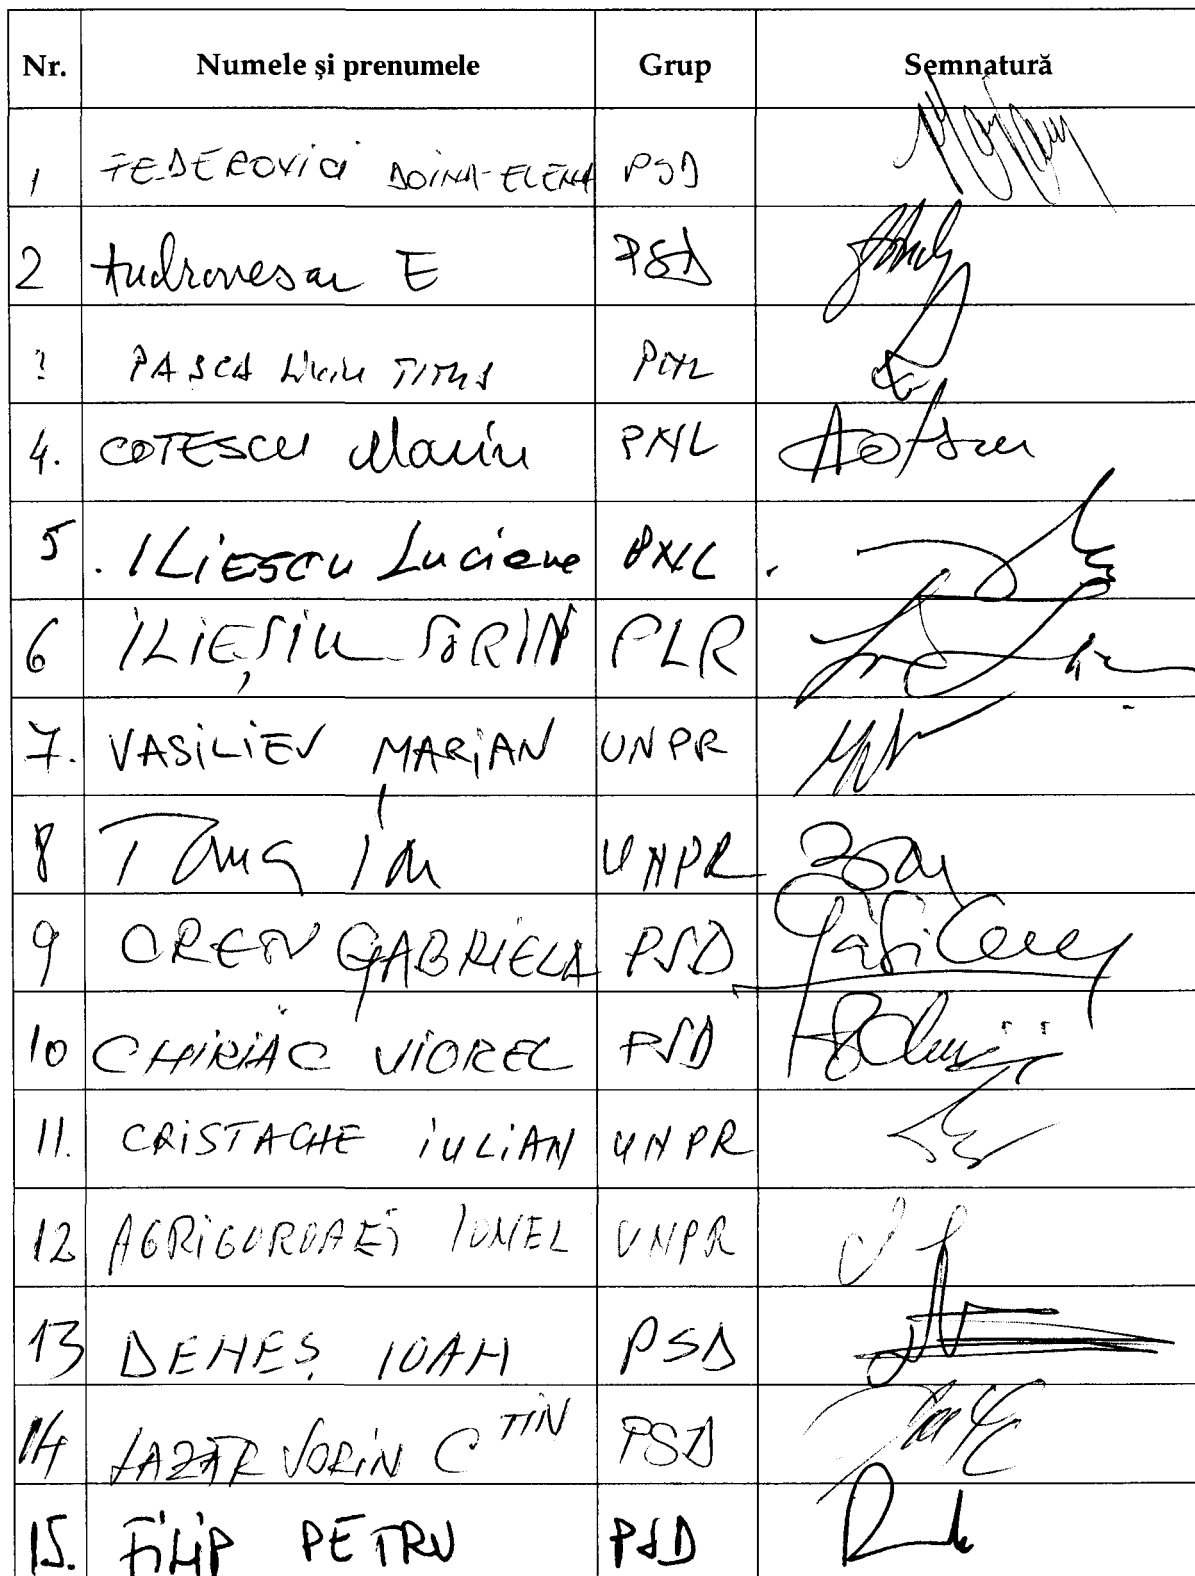 Nr. Numele și prenumele Grup Semnatură
1 FEDEROVICI DOINA-ELENA PSD
2 Andronescu E PSD
PAȘCA Liviu TITUS PNL
4. COTESCU Marin PNL
5. ILIESCU Luciane PNL
6 ILIEȘIU SORIN PLR
7. VASILIEV MARIAN UNPR
8 UNPR
9 CREȚU GABRIELA PSD
10 CHIRIAC VIOREL PSD
11. CRISTACHE IULIAN UNPR
12 AGRIGOROAEI IONEL UNPR
13 DENEȘ IOAN PSD
14 LAZĂR SORIN C TIN PSD
15. FILIP PETRU PSD